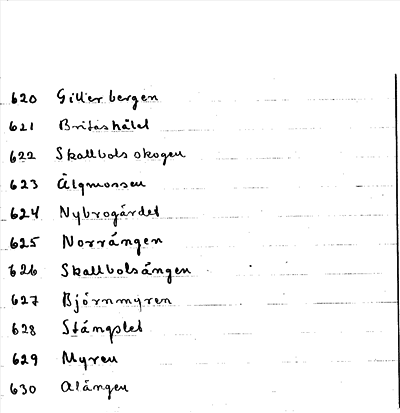 620 Gillerbergen
621 Britashäld
622 Skallbolsskogen
623 Älgmossen
624 Nybrogärdet
625 Norrängen
626 Skallbolsängen
627 Björnmyren
628 Stängslet
629 Myren
630 Alängen